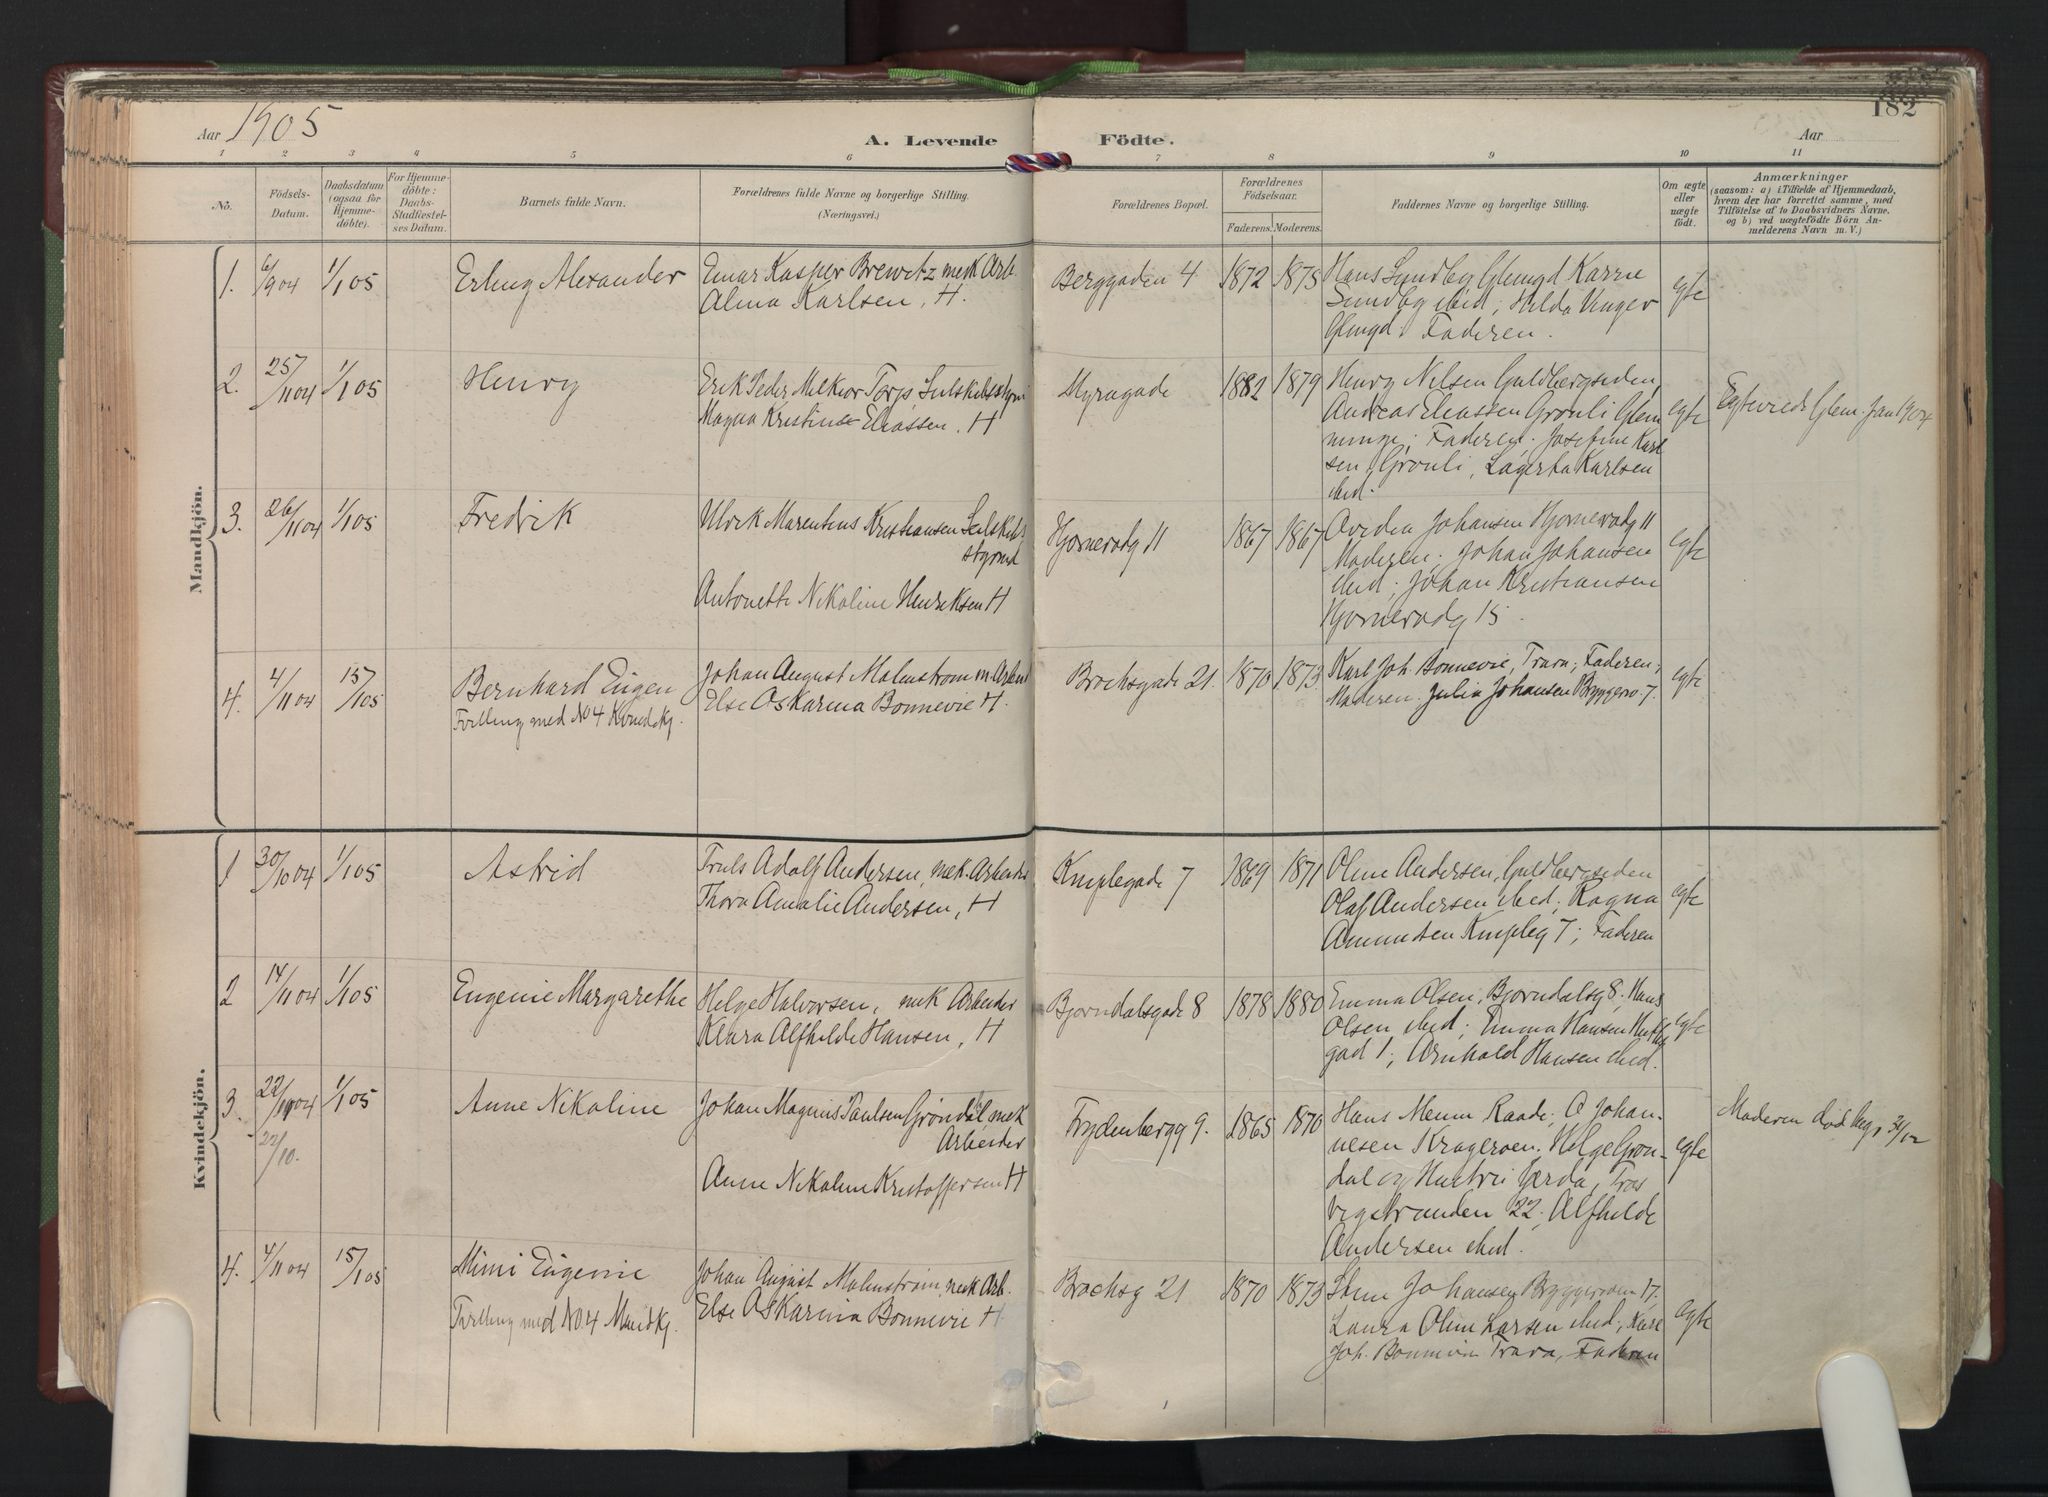 182
Aar 1905
A. Levende Födte.
Aar
1 2 3 4 5 6 7 8 9 10 11
No.
Födsels-Datum.
Daabsdatum (ogsaa for Hjemme-döbte).
For Hjemme-döbte: Daabs-Stadfæstel-ses Datum.
Barnets fulde Navn.
Forældrenes fulde Navne og borgerlige Stilling.
(Næringsvei.)
Forældrenes Bopæl.
Forældrenes Födselsaar.
Faderens. Moderens.
Faddernes Navne og borgerlige Stilling.
Om ægte eller uægte födt.
Anmærkninger
(saasom: a) i Tilfælde af Hjemmedaab,
hvem der har forrettet samme, med
Tilföielse af to Daabsvidners Navne,
og b) ved uægtefödte Börn An-
melderens Navn m. V.)
Mandkjön.
1. 6/9 04 1/1 05 Erling Alexander
Einar Kasper Brewitz mek Arb.
Alma Karlsen, H.
Berggaden 4 1872 1875
Hans Sundby Glemgd Karen
Sundby ibid; Hilda Unger
Glemgd. Faderen.
egte
2. 25/11 04 1/1 05 Henry
Erik Peder Melkior Torp Seilskibsstyrm
Magna Kristine Eliassen. H
Myragade 1882 1879
Henry Nilsen Guldbergsiden,
Andreas Eliassen Grønli Glem
minge; Faderen. Josefine Karl
sen Grønli, Lagerta Karlsen
ibid.
egte
Egteviede Glem. Jan 1904
3. 26/11 04 1/1 05 Fredrik
Ulrik Marentius Kristiansen Seilskibs
styrmd
Antonette Nikoline Henriksen H
Hjørnerødg 11 1867 1867
Johansen Hjørnerødg 11
Moderen; Johan Johansen
ibid; Johan Kristiansen
Hjørnerødg 15.
egte
4. 4/11 04 15/1 05 Bernhard Eugen
Tvilling med No 4 Kvindekj.
Johan August Malmstrøm m. Arbeid
Else Oskarina Bonnevie H.
Brochsgade 21. 1870 1873
Karl Joh. Bonnevie, Trara; Faderen;
Moderen. Julia Johansen Byggerv. 7.
egte
Kvindekjön.
1 30/10 04 1/1 05 Astrid
Truls Adolf Andersen, mek. Arbeider
Thora Amalie Andersen, H
Kniplegade 7 1869 1871
Oline Andersen, Guldbergsiden
Olaf Andersen ibid; Ragna
Amundsen Knipleg 7; Faderen
egte
2 14/11 04 1/1 05 Eugenie Margarethe
Helge Halvorsen, mek Arbeider
Klara Alfhilde Hansen, H
Bjørndalsgade 8 1878 1880
Emma Olsen, Bjørndalsg 8. Hans
Olsen ibid; Emma Hansen
gad 1; Arnhold Hansen ibid.
egte
3. 22/10 04 1/1 05 Anne Nikoline
22/10.
Johan Magnus Paulsen Grøndal mek
Arbeider
Anne Nikoline Kristoffersen H
Frydenbergg 9. 1865 1870
Hans Raade; O Johan-
nesen Kragerøen. Helge Grøn-
dal og Hustru Gerda, Tros
vigstranden 22; Alfhilde
Andersen ibid.
egte
Moderen død 31/12
4. 4/11 04 15/1 05 Mimi Eugenie
Tvilling med No 4 Mandkj.
Johan August Malmstrøm, mek Arb.
Else Oskarina Bonnevie H
Brochsg 21 1870 1873
Johansen 17,
Laura Oline Larsen ibid; Karl
Joh. Bonnevie Trara, Faderen
egte